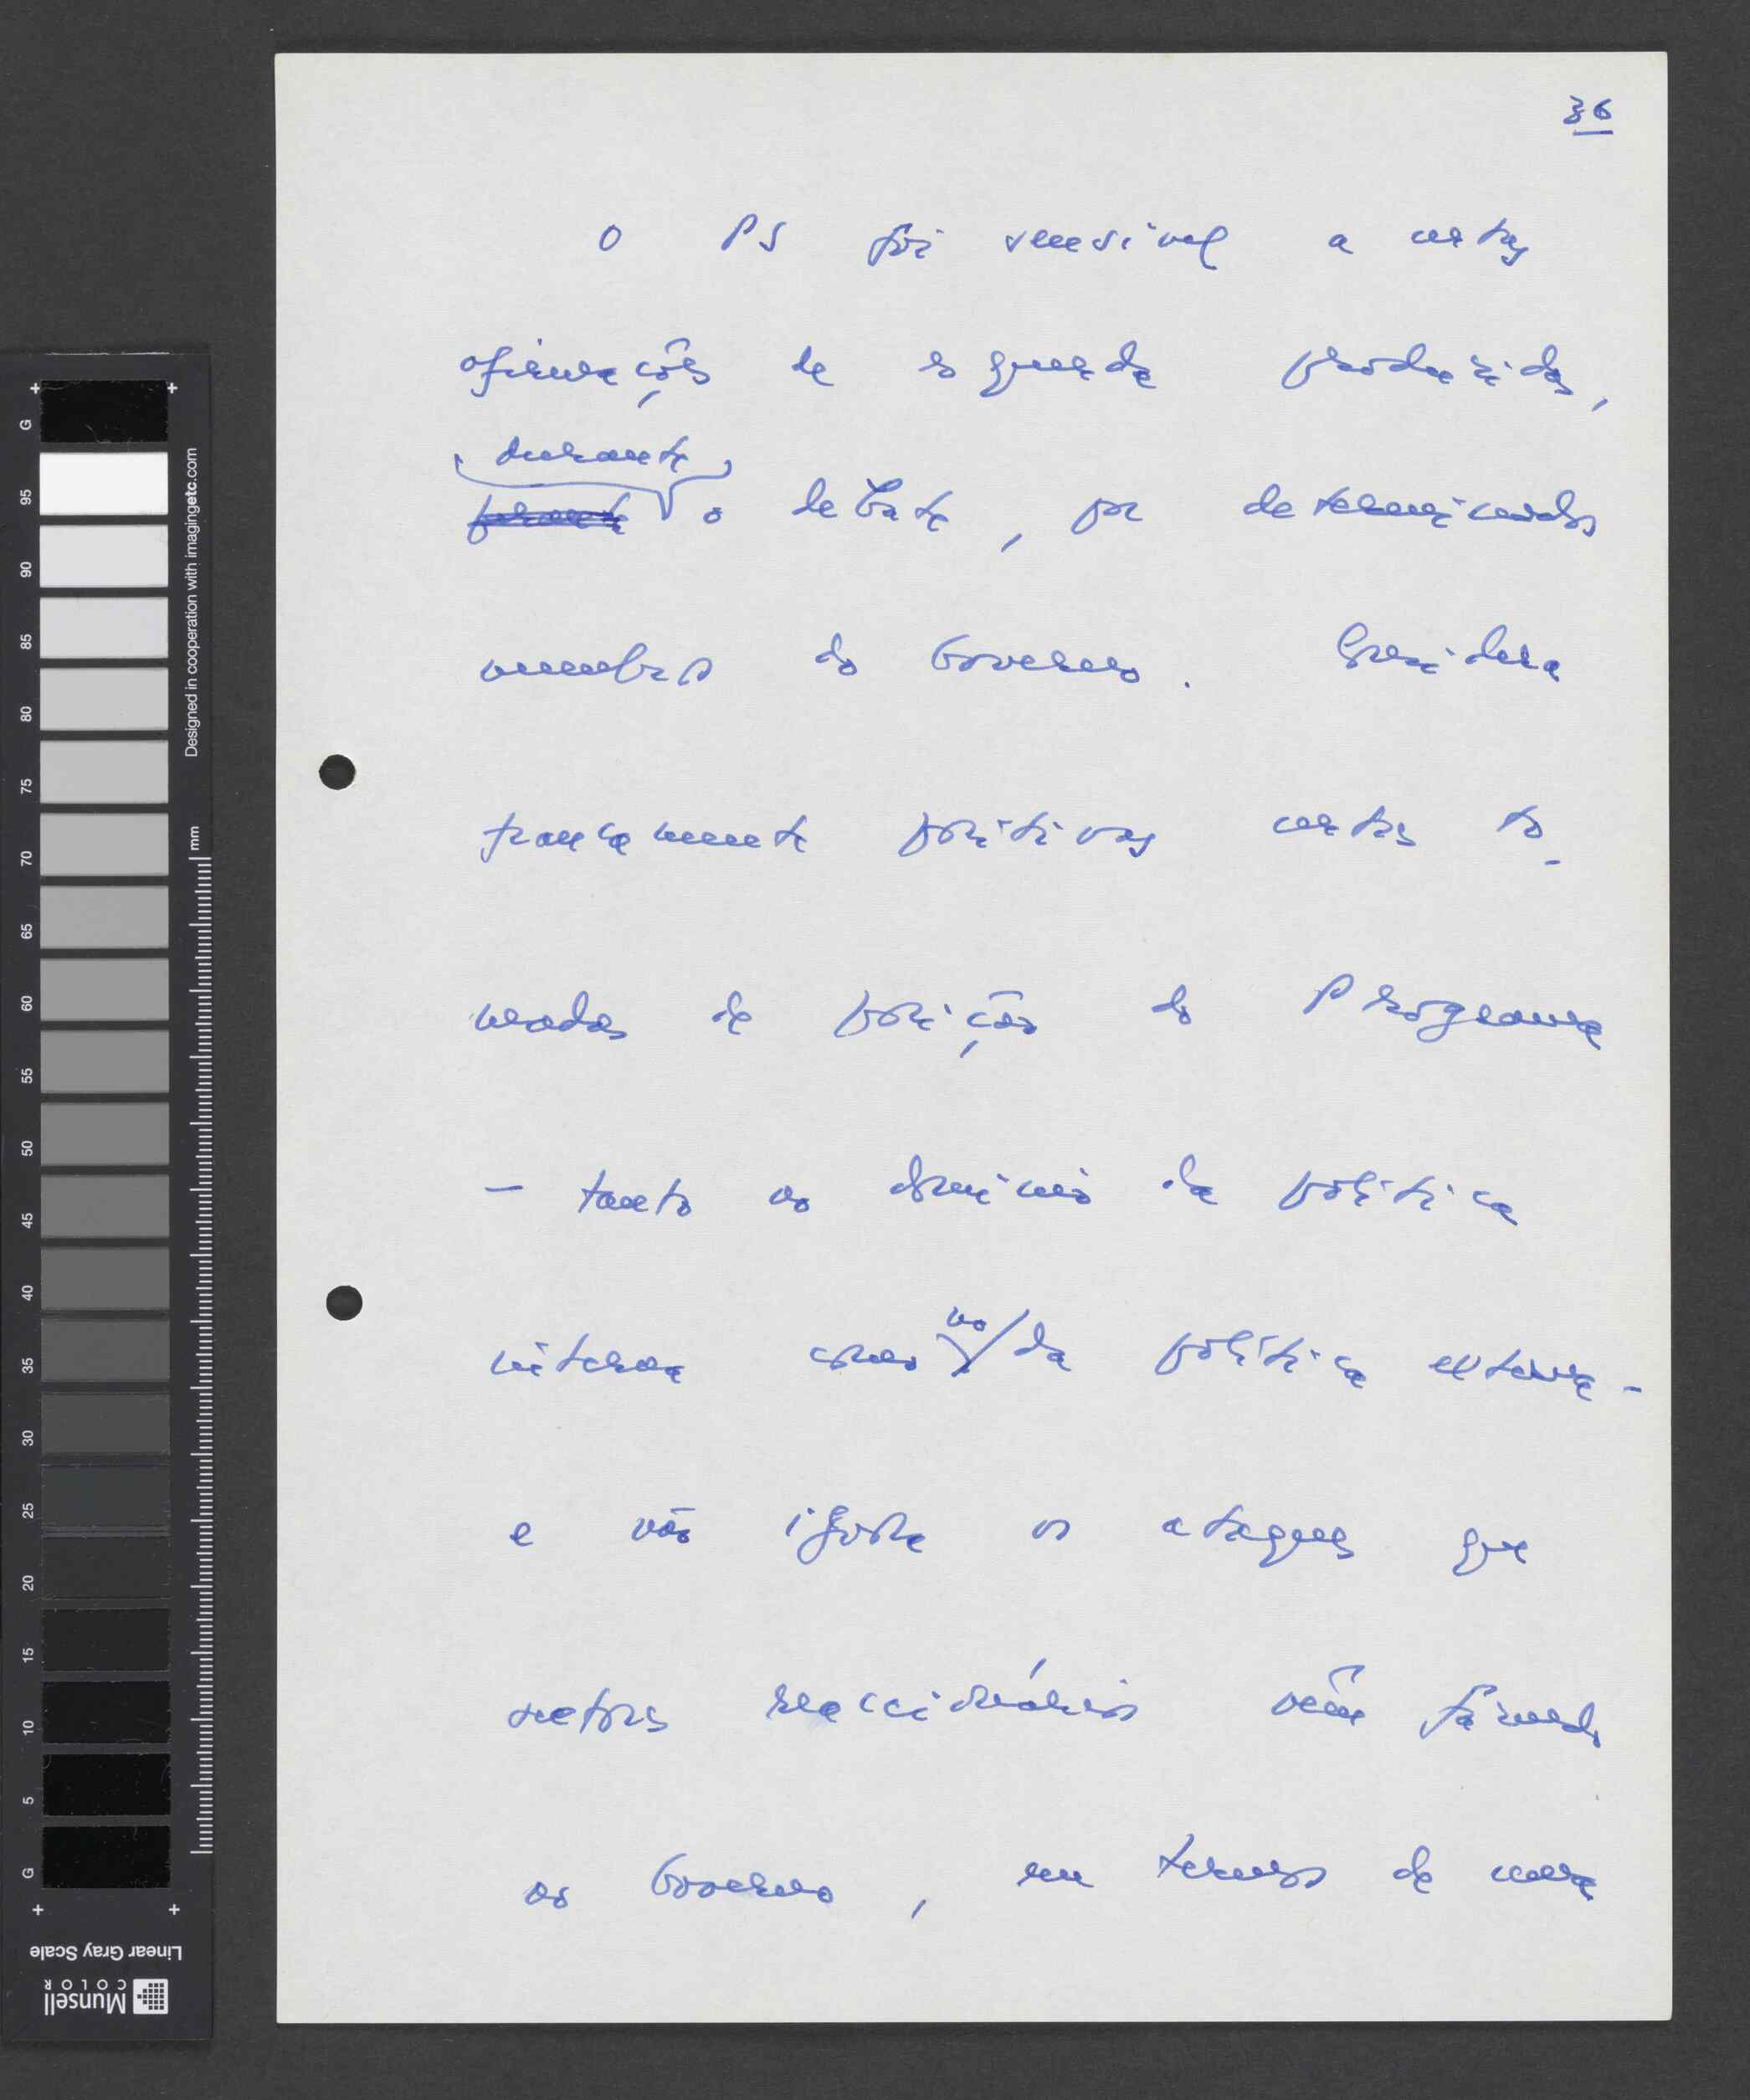 36
O PS foi sensível a certas
afirmações de esquerda produzidas,
durante
perante o debate, por determinados
membros do Governo. Considera
francamente positivas certas to-
madas de posição do Programa
- tanto no domínio da política
interna como no da política externa -
e não ignora os ataques que
sectores reaccionários vêm fazendo
ao Governo, em termos de uma
Designed in cooperation with imagingetc.com
mm
G 95 90 85 80 75 70 65 60 55 50 45 40 35 30 25 20 15 10 5 G
Linear Gray Scale
Munsell
COLOR